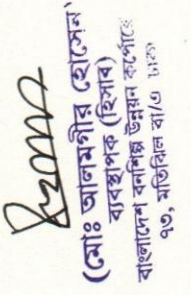 (মোঃ আলমগীর হোসেন)
ব্যবস্থাপক (হিসাব)
বাংলাদেশ বনশিল্প উন্নয়ন কর্পোরে
৭৩, মতিঝিল বা/এ ঢাকা